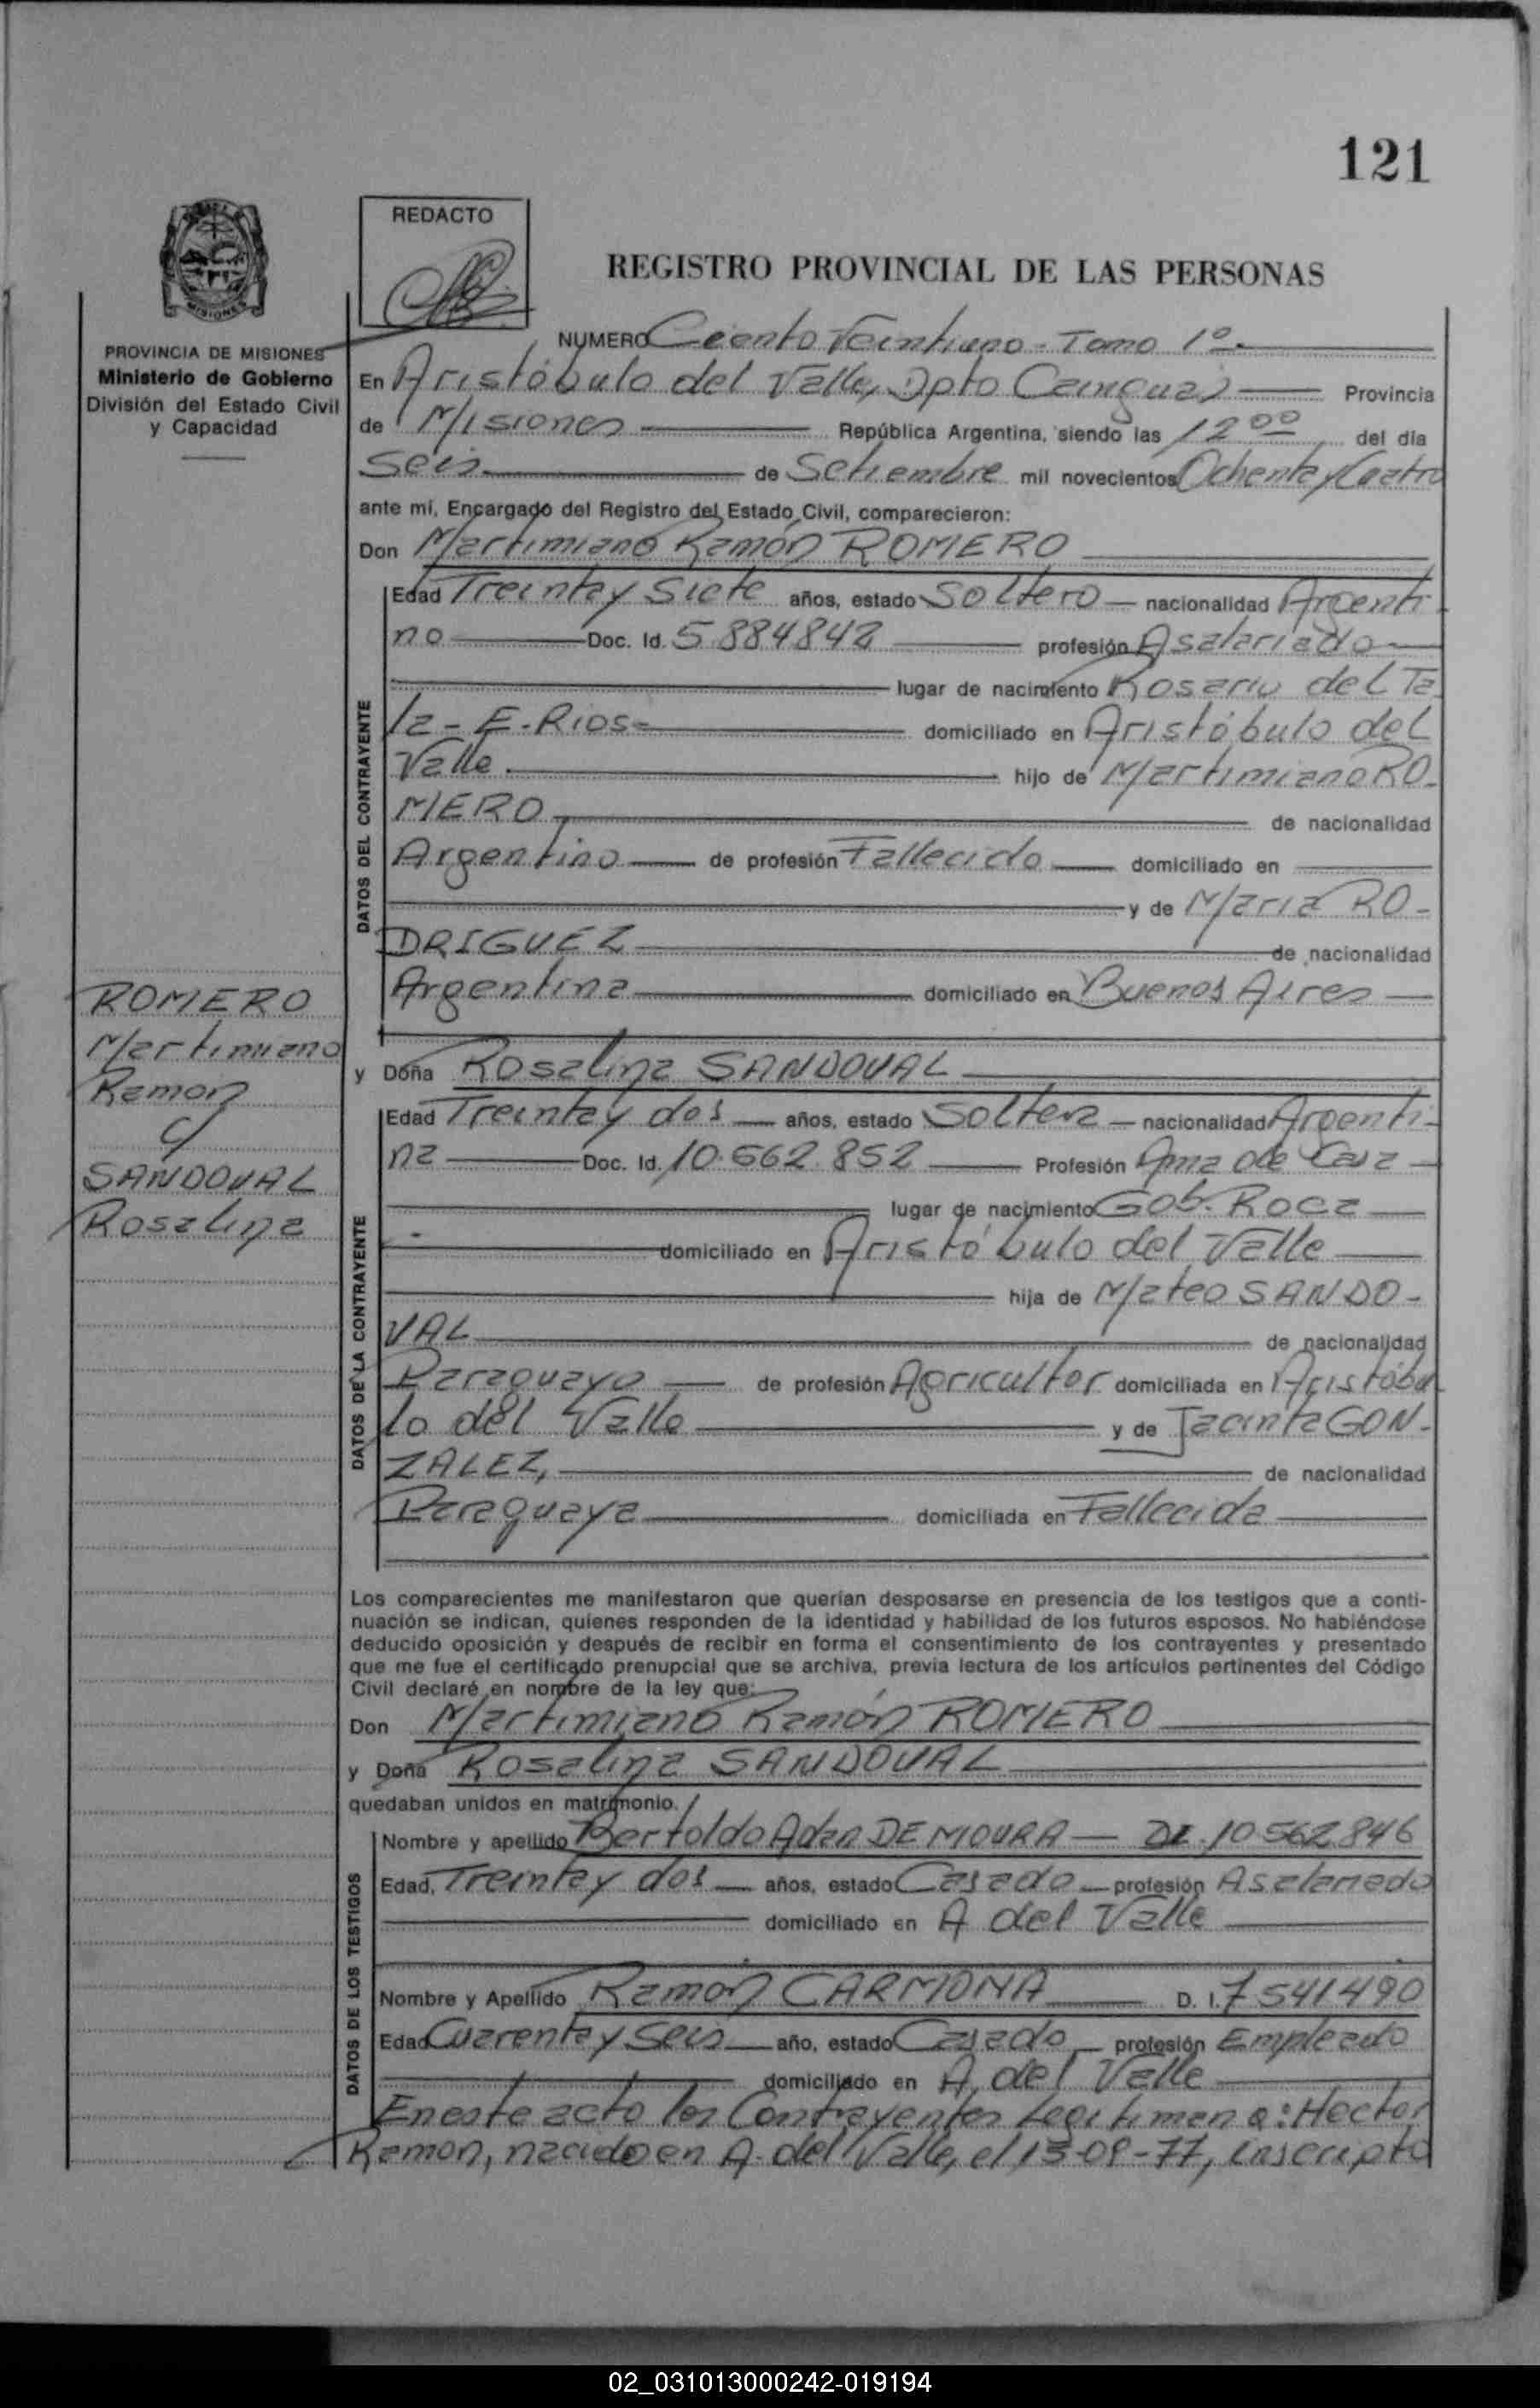 121
REDACTO
REGISTRO PROVINCIAL DE LAS PERSONAS
MISIONES
PROVINCIA DE MISIONES
Ministerio de Gobierno
División del Estado Civil
y Capacidad
NUMERO Ciento Veintiuno - Tomo 1º
En Aristóbulo del Valle, Dpto Cainguás Provincia
de Misiones República Argentina, siendo las 12 00 del día
Seis de Setiembre mil novecientos Ochenta y Cuatro
ante mí, Encargado del Registro del Estado Civil, comparecieron:
Don Martimiano Ramón ROMERO
DATOS DEL CONTRAYENTE
Edad Treinta y Siete años, estado Soltero nacionalidad Argenti-
no Doc. Id. 5.884842 profesión Asalariado
lugar de nacimiento Rosario del Ta
la - E. Rios- domiciliado en Aristóbulo del
Valle hijo de Martimiano RO-
MERO de nacionalidad
Argentino de profesión Fallecido domiciliado en
y de Maria RO-
DRIGUEZ de nacionalidad
Argentina domiciliado en Buenos Aires
ROMERO
Martimiano
Ramon
c/
SANDOVAL
Rosalina
y Doña Rosalina SANDOVAL
DATOS DE LA CONTRAYENTE
Edad Treinta y dos años, estado Soltera nacionalidad Argenti-
na Doc. Id. 10.562.852 Profesión Ama de Casa
lugar de nacimiento Gob. Roca
domiciliado en Aristóbulo del Valle
hija de Mateo SANDO-
VAL de nacionalidad
Paraguayo de profesión Agricultor domiciliada en Aristóbu
lo del Valle y de Jacinta GON-
ZALEZ, de nacionalidad
Paraguaya domiciliada en Fallecida
Los comparecientes me manifestaron que querían desposarse en presencia de los testigos que a conti-
nuación se indican, quienes responden de la identidad y habilidad de los futuros esposos. No habiéndose
deducido oposición y después de recibir en forma el consentimiento de los contrayentes y presentado
que me fue el certificado prenupcial que se archiva, previa lectura de los artículos pertinentes del Código
Civil declaré en nombre de la ley que:
Don Martimiano Ramón ROMERO
y Doña Rosalina SANDOVAL
quedaban unidos en matrimonio.
DATOS DE LOS TESTIGOS
Nombre y apellido Bertoldo Adan DE MOURA DI. 10562846
Edad, Treinta y dos años, estado Casado profesión Asalariado
domiciliado en A del Valle
Nombre y Apellido Ramón CARMONA D. I. 7541490
Edad Cuarenta y Seis año, estado Casado profesión Empleado
domiciliado en A. del Valle
En este acto los Contrayentes Legitiman a: Hector
Ramon, nacido en A. del Valle, el 13-09-77, inscripto
02_031013000242-019194